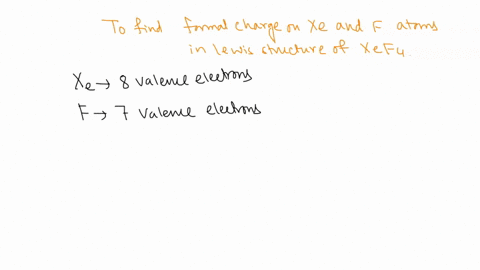 To find formal charge on Xe and F atoms
in lewis structure of XeF4.
Xe → 8 valence electrons
F → 7 valence electrons